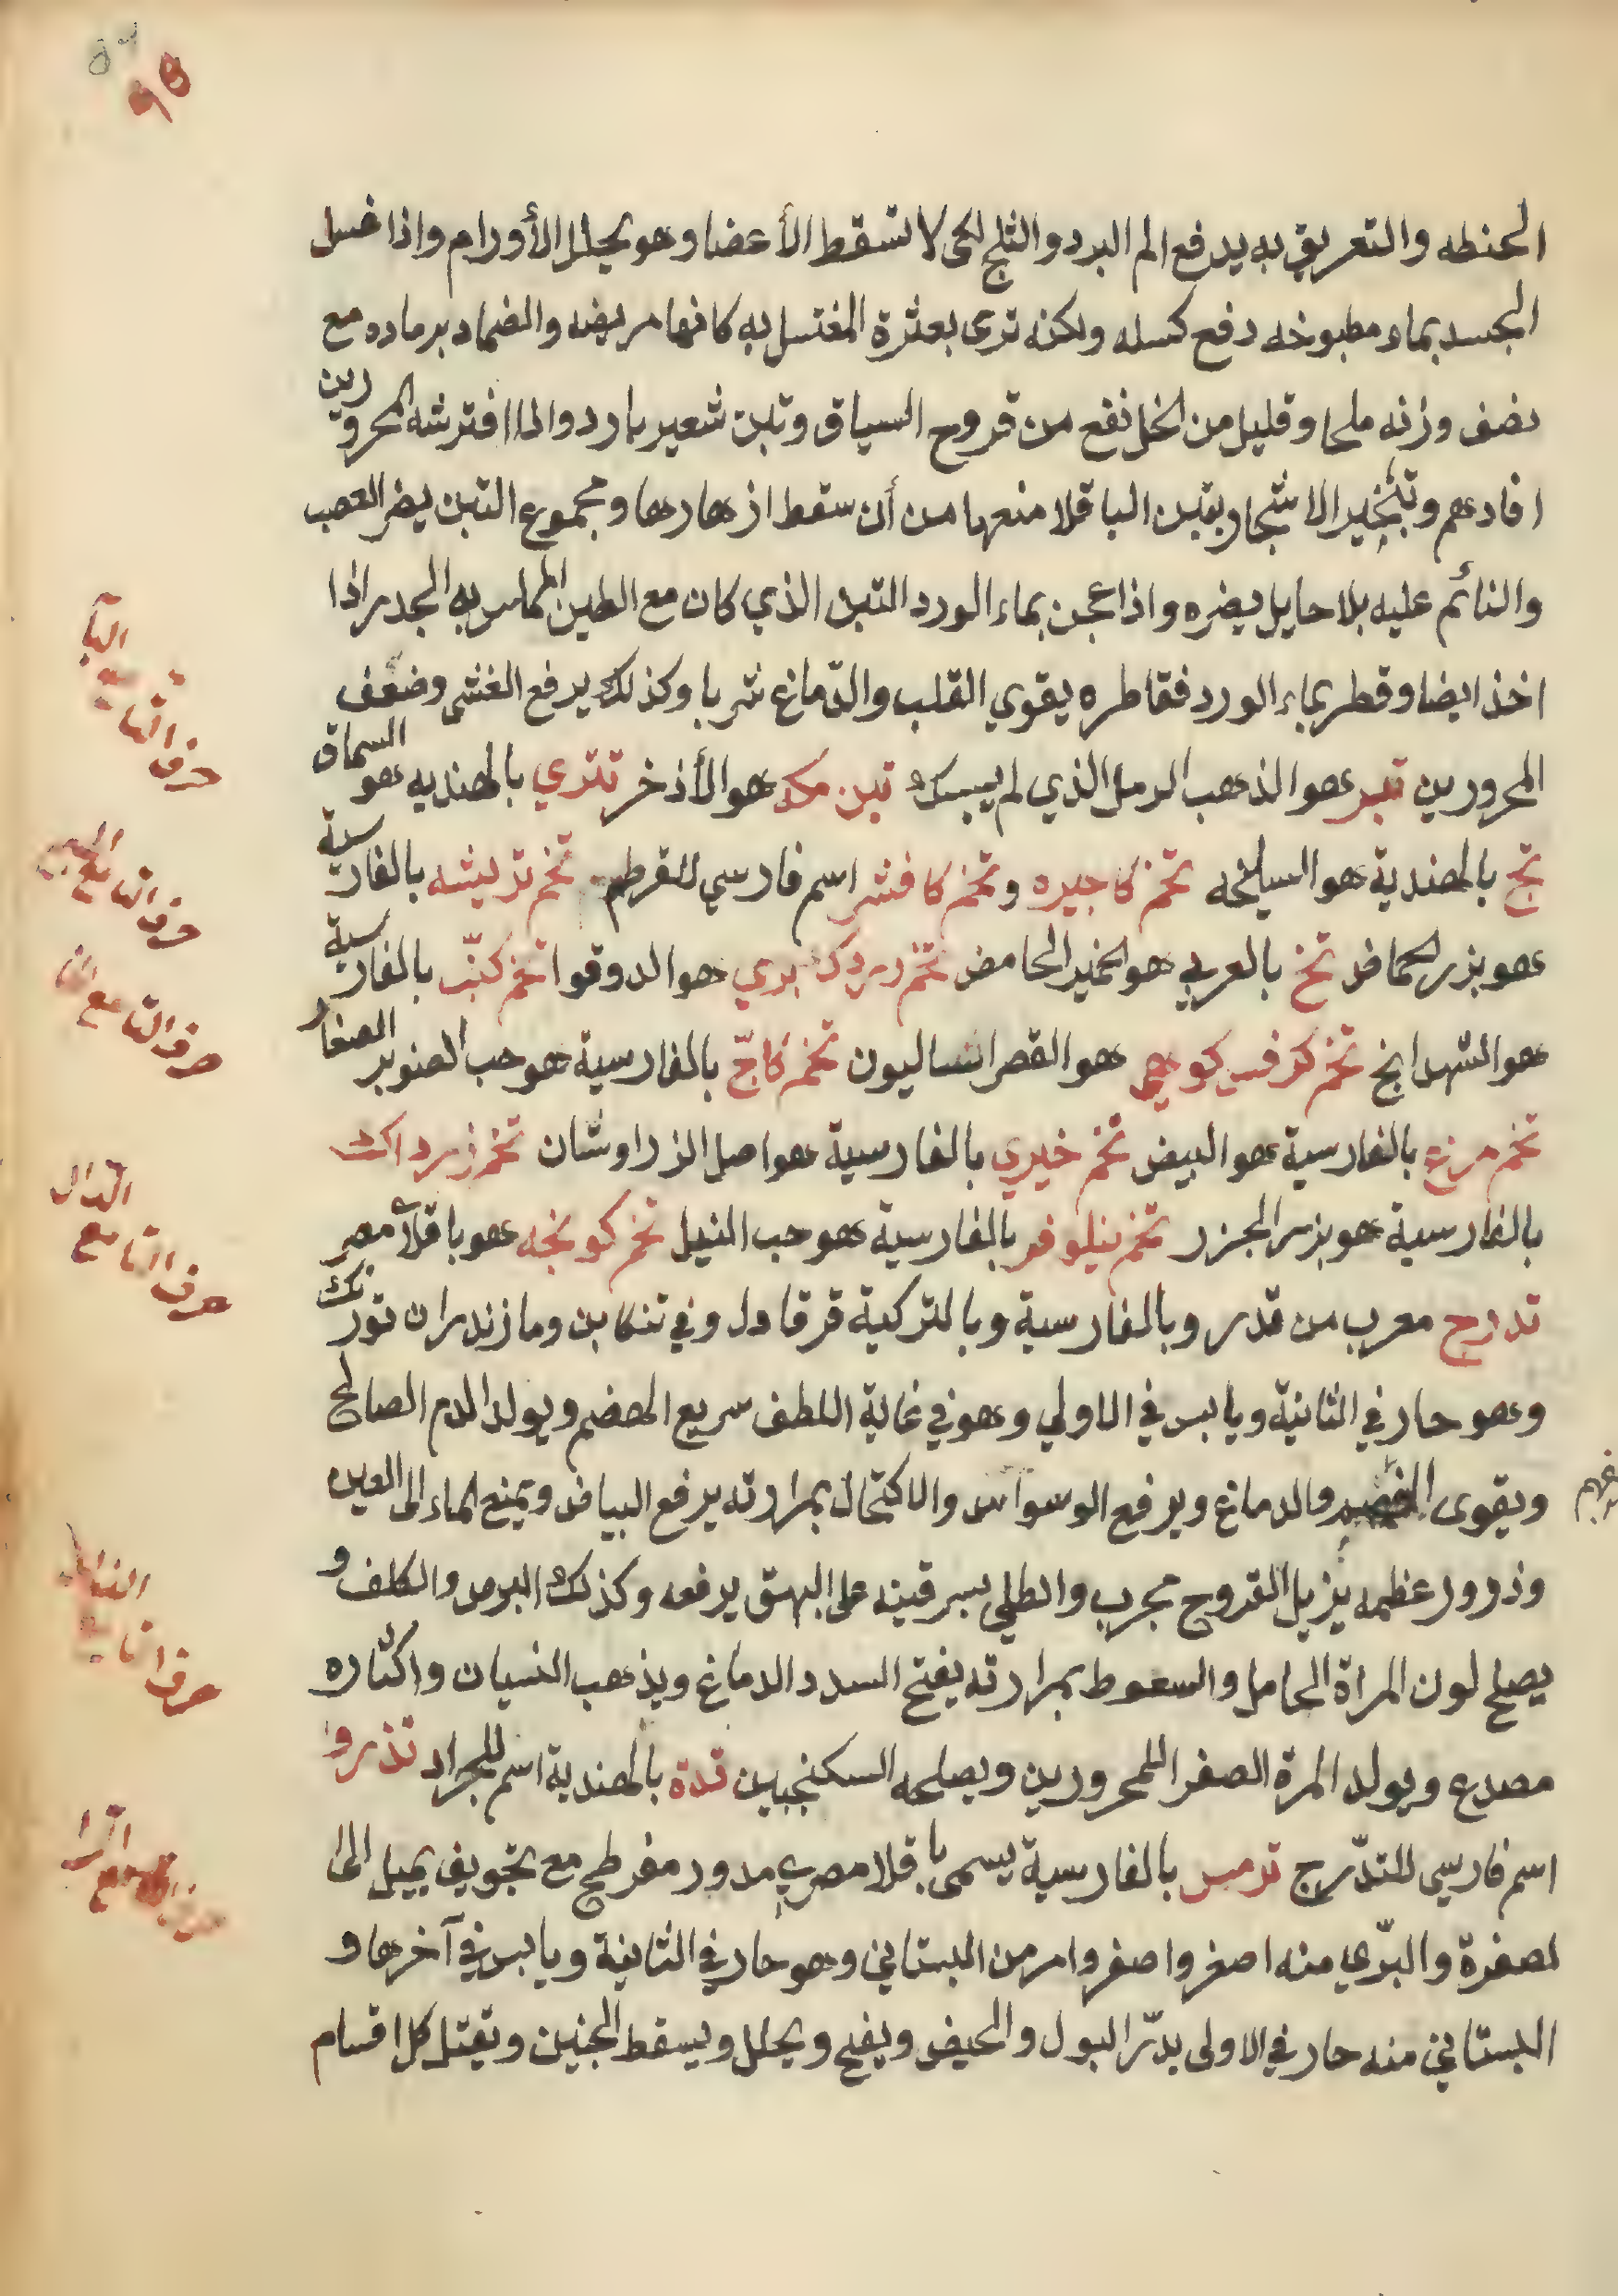 الحنطه والتعريق به يدفع الم البرد والثلج لكى لا تسقط الأعضا وهو يحلل الأورام واذا غسل
الجسد بماء مطبوخه دفع كسله ولكنه ترى بعثرة المغتسل به كانها مريضه والضماد برماده مع
نصف وزنه ملحا وقليل من الخل نفع من قروح السياق وتبن شعير بارد والما افترشه المحرورين
افادهم وتبخير الاشجار بتبن الباقلا منعها من أن سقط ازهارها ومجموع التبن يضر العصب
والنائم عليه بلا حايل يضره واذا عجن بماء الورد التبن الذي كان مع الطين المماس به الجدر اذا
اخذ ايضا وقطر بماء الورد فقاطره يقوي القلب والدّماغ شربا وكذلك يرفع الغشى وضعف
المحرورين تبر هو الذهب الرمل الذي لم يسبك تبن مكه هو الأذخر تتري بالهنديه هو السماق
تج بالهندية هو السليخه تخم كاجيره وتخم كافشر اسم فارسي للقرطم تخم ترشه بالفارسية
هو بزر الحماض تخ بالعربي هو الخمير الحامض تخم زردك بري هو الدوقوا تخم كنّب بالفارسية
هو الشهدانج تخم كرفس كوهي هو القصرانساليون تخم كاجّ بالفارسية هو حب الصنوبر الصغار
تخم مرغ بالفارسية هو البيض تخم خيري بالفارسية هو اصل الزراوشان تخم زرداك
بالفارسية هو بزر الجزر تخم نيلوفر بالفارسية هو حب النيل تخم كونجه هو باقلآ مصر
تدرج معرب من تدر وبالفارسية وبالتركية قرقاول وفي تنكابن ومازندران تورنك
وهو حار في الثانية ويابس في الاولي وهو في غاية اللطف سريع الهضم ويولد الدم الصالح
ويقوى والدماغ ويرفع الوسواس والاكتحال بمرارته يرفع البياض ويمنع الماء الى العين
وذرور عظمه يزيل القروح مجرب والطلى بسرقينه على البهق يرفعه وكذلك البرص والكلف و
يصلح لون المراة الحامل والسعوط بمرارته يفتح السدد الدماغ ويذهب النسيان واكثاره
مصدع ويولد المرة الصفرا للمحرورين ويصلحه السكنجبين تدة بالهندية اسم للجراد تذرو
اسم فارسي للتدّرج ترمس بالفارسية يسمى باقلا مصري مدور مفرطح مع تجويف يميل الى
لصفرة والبرّي منه اصغر واصفر وامر من البستاني وهو حار في الثانية ويابس في آخرها و
البستاني منه حار في الاولى يدرّ البول والحيض ويفتح ويحلل ويسقط الجنين وتقتل كل اقسام
البآ
حرف التا مع
حرف التا مع الجيم
حرف التا مع الخا
الدال
حرف التا مع
الذال
حرف التا مع
الرا